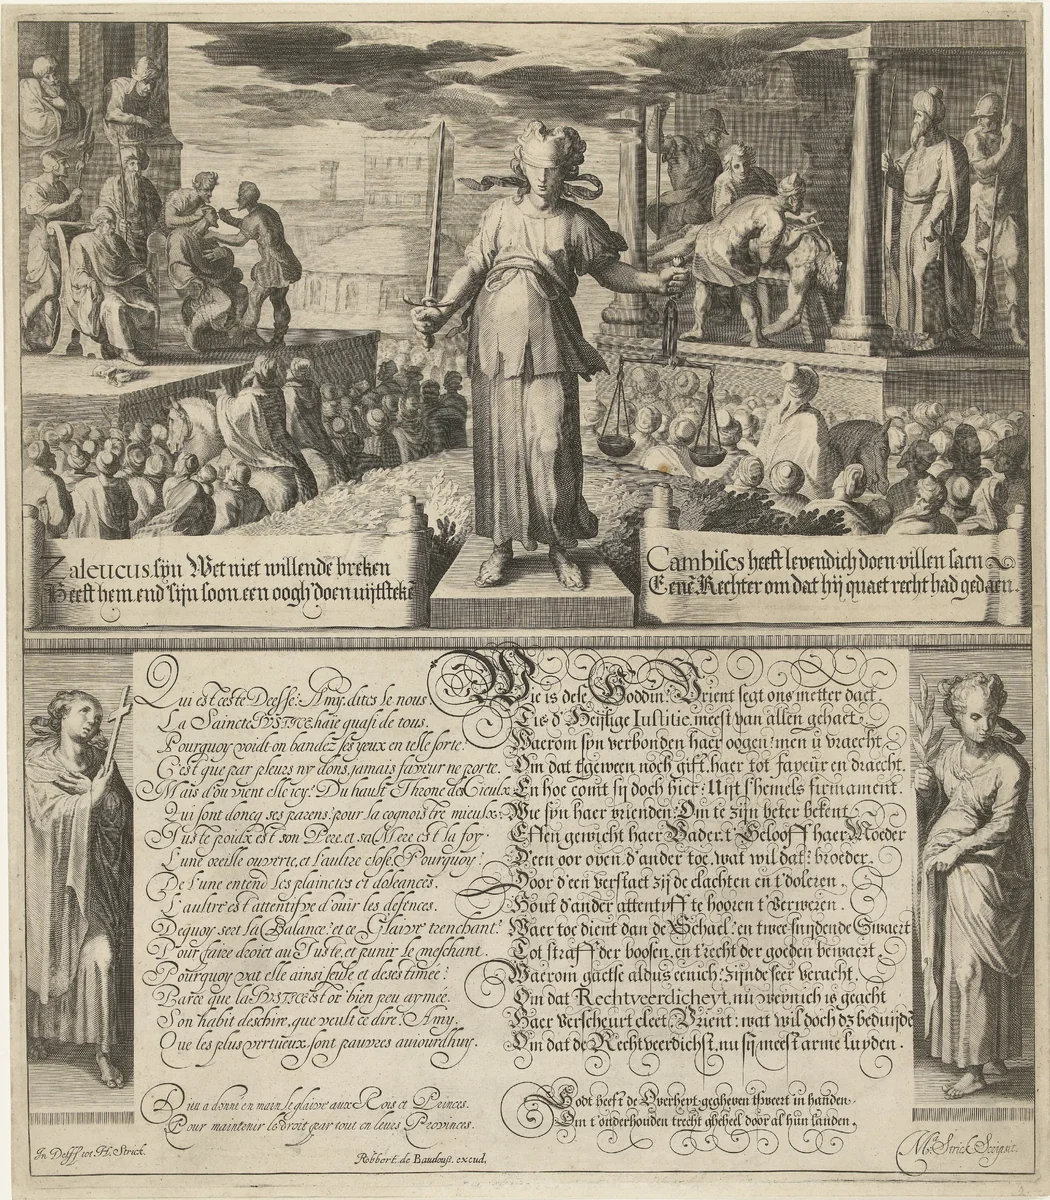 Zaleucus sijn Wet niet willende breken
Heeft hem end' sijn soon een oogh doen uijtsteken
Cambises heeft levendich doen villen saen
Eenē Rechter om dat hij quaet recht had gedaen.
Qui est ceste Deesse? Amy, dites le nous.
La Saincte IVSTICE haïe quasi de tous.
Pourquoy voidt on bandez ses yeux en telle sorte?
C'est que par pleurs ny dons, jamais faveur ne porte.
Mais d'ou vient elle icy? Du hault Throne des Cieulx
Qui sont doncq ses parens? pour la cognoistre mieulx:
Juste poidx est son Pere, et sa Mere est la foy.
L'une oreille ouverte, et l'aultre close. Pourquoy?
De l'une entend les plainctes et doleances.
L'aultre est attentifve d'ouir les defences.
Dequoy sert la Balance? et ce Glaive trenchant?
Pour faire droict au Juste, et punir le meschant.
Pourquoy vat elle ainsi seule et desestimee?
Parce que la IVSTICE est or' bien peu aymée.
Son habit deschire, que veult ce dire? Amy.
Que les plus vertueux sont pauvres aujourdhuy.
Dieu a donné en main le glaive aux Rois et Princes.
Pour maintenir le droit par tout en leues Provinces.
Wie is dese Goddin? Vrient segt ons metter daet.
Tis d'Heijlige Iustitie, meest van allen gehaet.
Waerom sijn verbonden haer oogen? men u vraecht.
Om dat tgeween noch gift, haer tot faveur en draecht.
En hoe comt sij doch hier? Uijt s'hemels firmament.
Wie sijn haer vrienden? Om te zijn beter bekent
Effen gewicht haer Vader, t'Gelooff haer Moeder
D'een oor open d'ander toe, wat wil dat? broeder.
Door d'een verstaet zij de clachten en t'doleren.
Hout d'ander attentyff te hooren t'Verweren.
Waer toe dient dan de Schael? en twee snijdende Swaert
Tot straff der boosen, en t'recht der goeden bewaert.
Waerom gaetse aldus eenich? zijnde seer veracht.
Om dat Rechtveerdicheyt, nu weynich is geacht
Haer verscheurt cleet, Vrient: wat wil doch dz beduijdē
Om dat de Rechtveerdichst, nu sij meest arme luyden.
Godt heeft de Overheyt gegheven tsweert in handen.
Om t'onderhouden trecht gheheel door al hun landen.
In Delff tot H. Strick.
Robbert de Baudouß. excud.
M. Strick Scripsit.